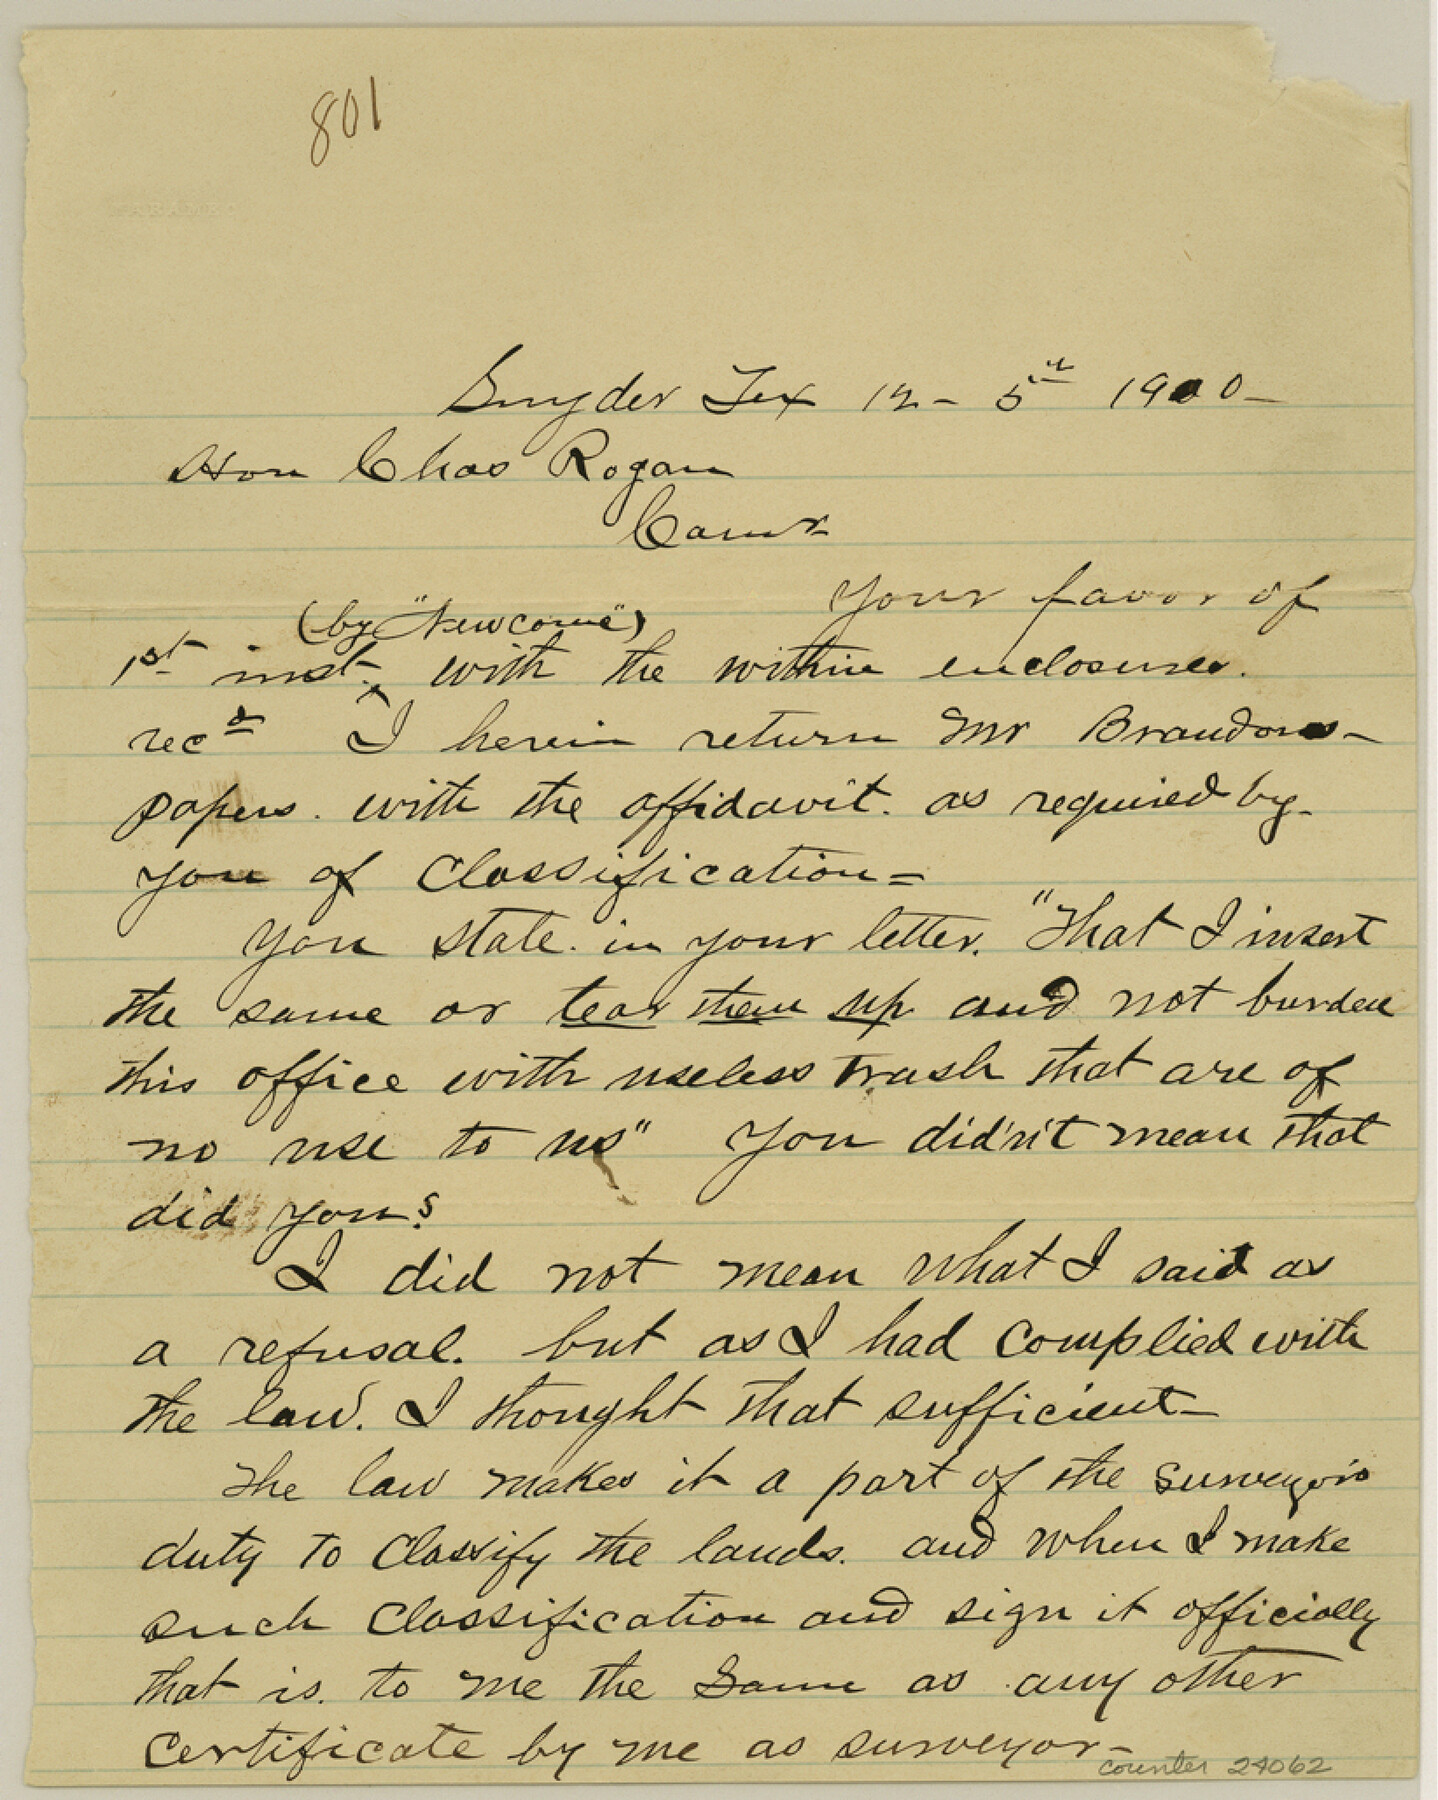 801
Snyder Tex 12 - 5th 1900 -
Hon Chas Rogan
Comr
Your favor of
(by "Newcome")
1st inst. ^ with the within enclosures.
recd I herein return Mr Brandons -
papers. with the affidavit. as required by -
you of Classification =
You state. in your letter. "That I insert
the same or tear them up and not burden
this office with useless trash that are of
no use to us" You did'n't mean that
did you?
I did not mean what I said as
a refusal. but as I had complied with
the law. I thought that sufficient -
The law makes it a part of the surveyor's
duty to Classify the lands. and when I make
such Classification and sign it officially
that is. to me the same as any other
Certificate by me as surveyor -
counter 24062